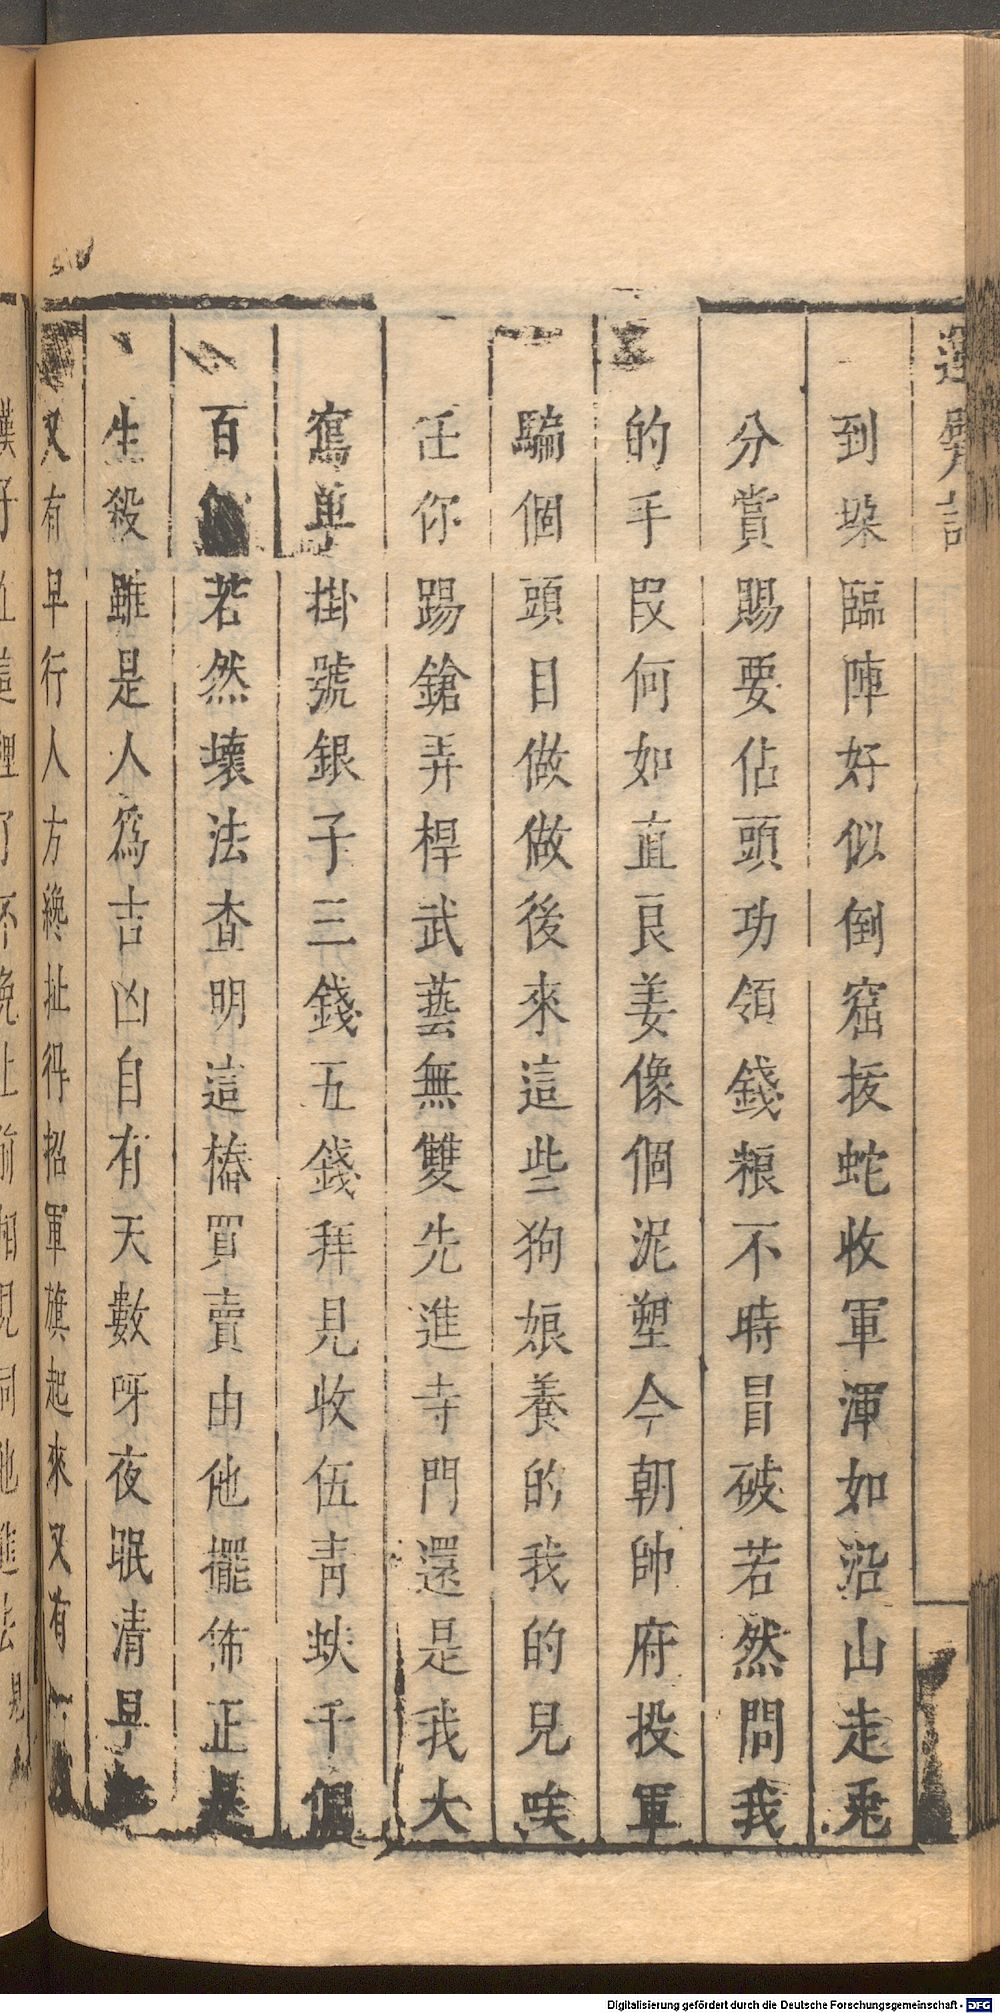 到垛臨陣好似倒窟拔蛇收軍渾如沿山走兎
分賞賜要佔頭功領錢粮不時冒破若然問我
的手段何如直艮姜像個泥塑今朝帥府投軍
騙個頭目做做後來這些狗娘養的我的兒唉
任你踢鎗弄桿武藝無雙先進寺門還是我大
寫單掛號銀子三錢五錢拜見收伍青蚨千個
百個若然壞法查明這樁買賣由他擺佈正是
生殺雖是人爲吉凶自有天數呀夜眠清早
又有早行人方纔扯得招軍旗起來又有
Digitalisierung gefördert durch die Deutsche Forschungsgemeinschaft - DFG